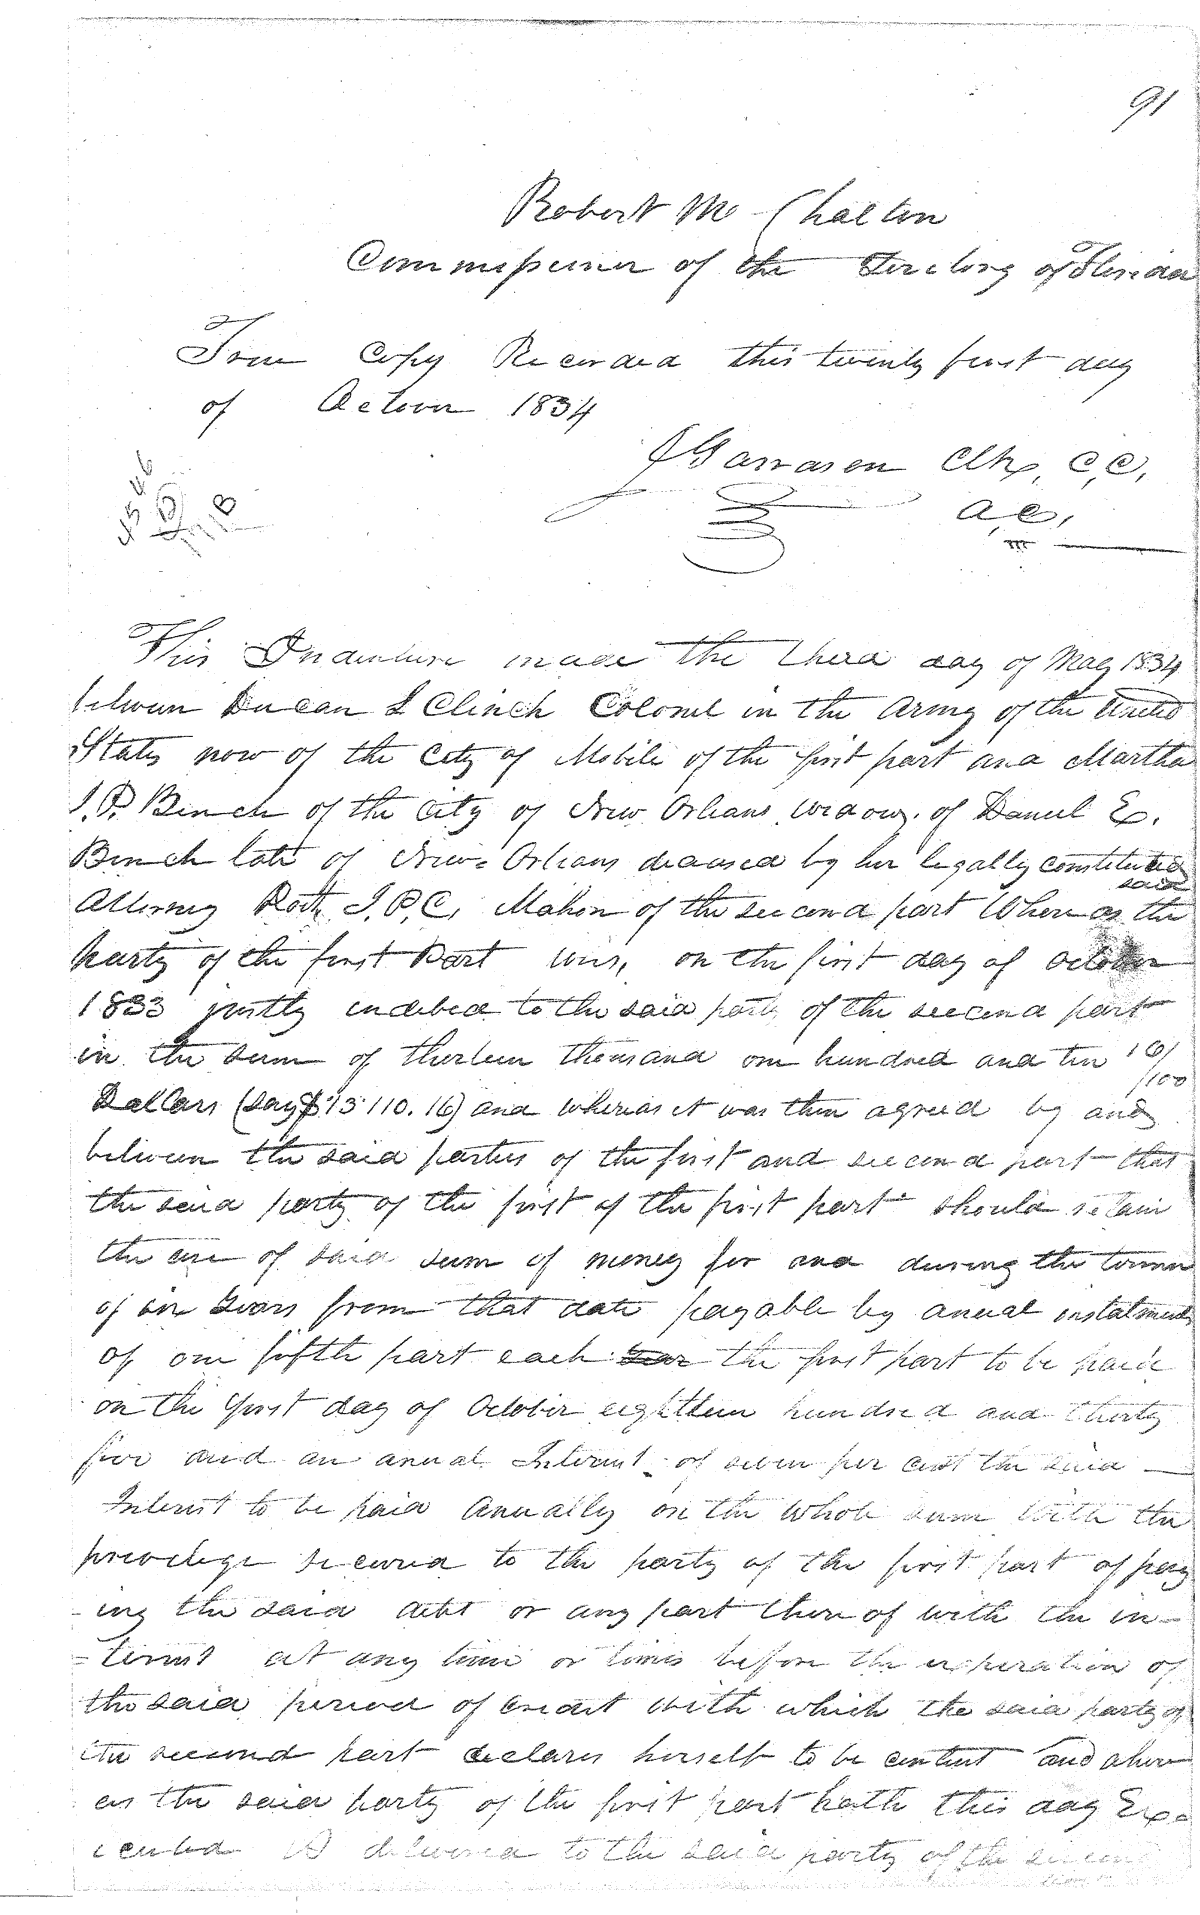 91
Robert M Chalton
Commissioner of the Teretory of Florida
True Copy Recorded this twenty first day
of October 1834
J Garrason Clk, C,C,
A,C,
This Indenture made the third day of May 1834
between Duncan L Clinch Colonel in the Army of the United
States now of the City of Mobile of the first part and Martha
J. P. Bench of the City of New Orleans widow of Daniel E.
Bench late of New Orleans deceased by her legally constituted
said
Attorney Robt. J. P. C, Mahon of the second part Where as the
party of the first Part was, on the first day of October
1833 justly indebed to the said party of the second part
in the sum of thirteen thousand one hundred and ten 16/
/100
Dollars (say $13 110.16) and whereas it was then agreed by and
between the said parties of the first and second part that
the said party of the first of the first part should retain
the use of said sum of money for and during the term
of six Years from that date payable by anual instalments
of one fifth part each the first part to be paid
on the first day of October eighteen hundred and thirty
five and an anual Interest of seven per cent the said
Interest to be paid Anually on the whole sum with the
priveledge secured to the party of the first part of pay
ing the said debt or any part there of with the in-
-terest at any time or times before the expiration of
the said period of credit with which the said party of
the second part declares herself to be content and where
as the said party of the first part hath this day Exe-
cuted & delivered to the said party of the second